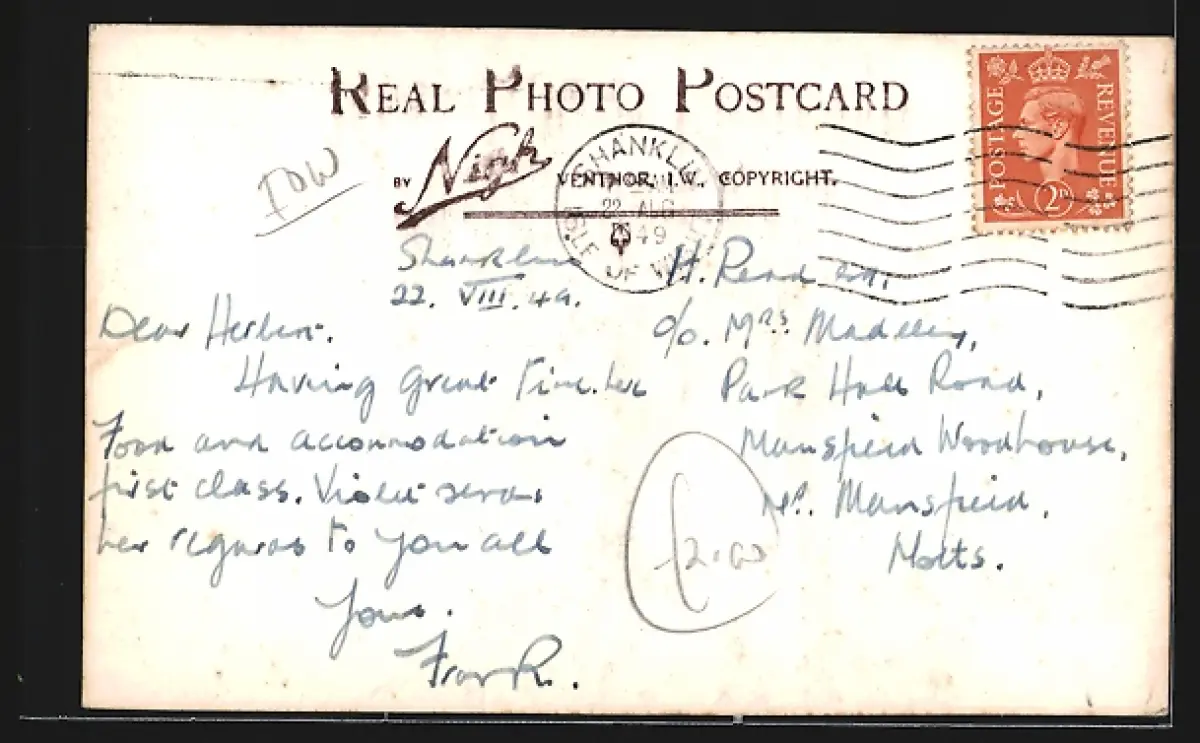 REAL PHOTO POSTCARD
BY Nigh VENTNOR, I.W., COPYRIGHT.
IOW
SHANKLIN
22 AUG
1949
ISLE OF
POSTAGE REVENUE
2D
Shanklin
22. VIII. 49.
Dear Herbert.
Having Great Time.
Food and accommodation
first class. Violet sends
her regards to you all
Yours.
Frank.
H. Read Esq.
c/o. Mrs Madeley,
Park Hall Road,
Mansfield Woodhouse,
Nr. Mansfield,
Notts.
£2.00